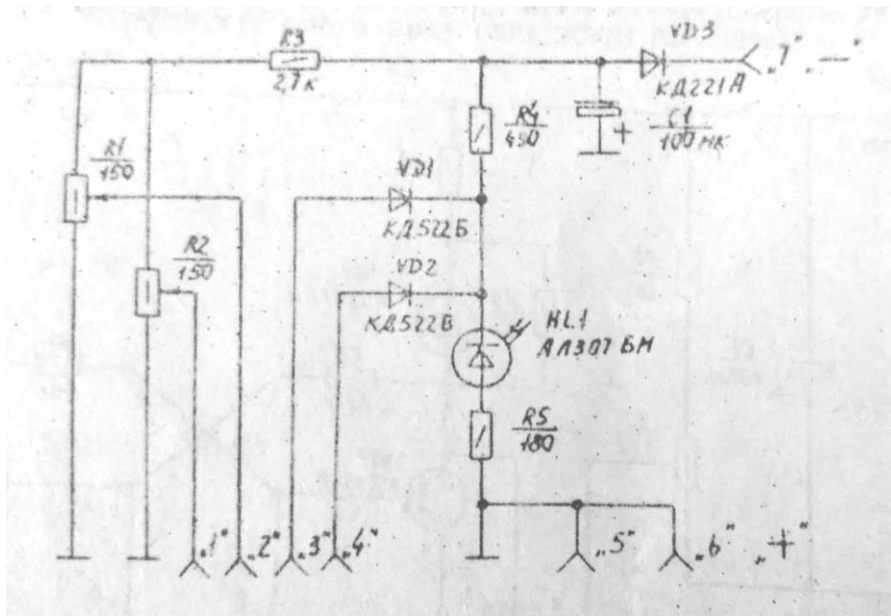 VD3
R3
2,7к
"7" "—"
КД221А
R4
430
C1
100 мк
+
R1
150
VD1
КД522Б
R2
150
VD2
КД522В
HL1
АЛ307 БМ
R5
180
"1" "2" "3" "4" "5" "6" "+"